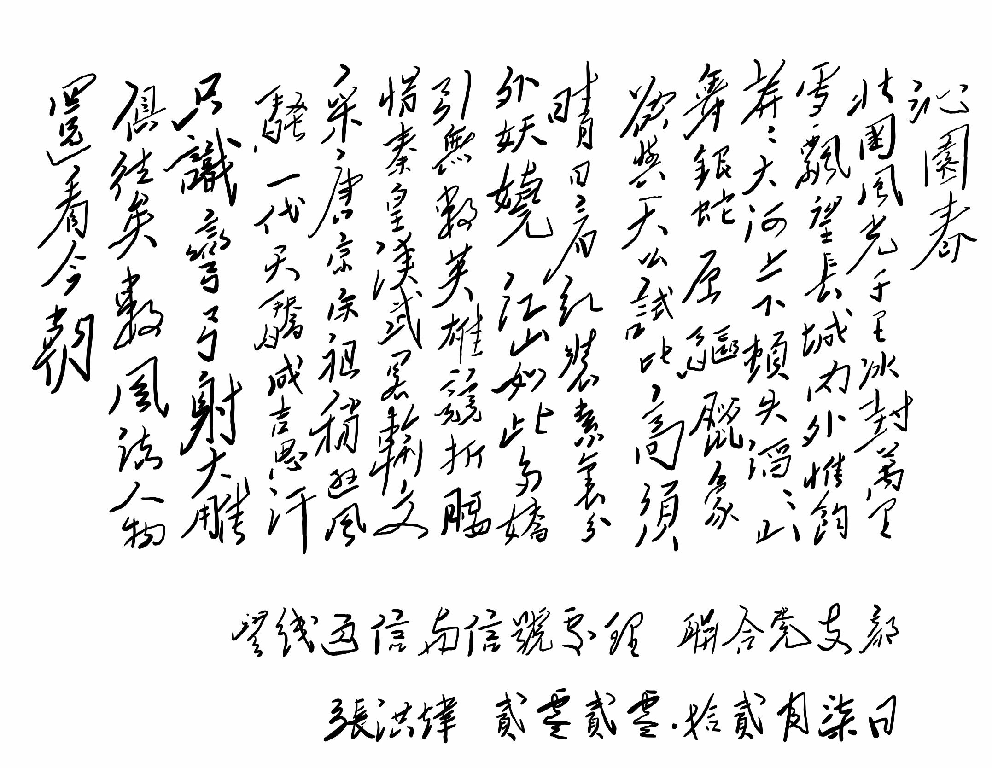 沁園春
北國風光千里冰封萬里
雪飄望長城内外惟餘
莽々大河上下頓失滔々山
舞銀蛇原驅臘象
欲與天公試比高須
晴日看紅裝素裹分
外妖嬈江山如此多嬌
引無數英雄競折腰
惜秦皇漢武畧輸文
采唐宗宋祖稍遜風
騷一代天驕成吉思汗
只識彎弓射大雕
俱往矣數風流人物
還看今朝
线通信与信號处理 聯合党支部
張洪煒 貳零貳零.拾貳月柒日